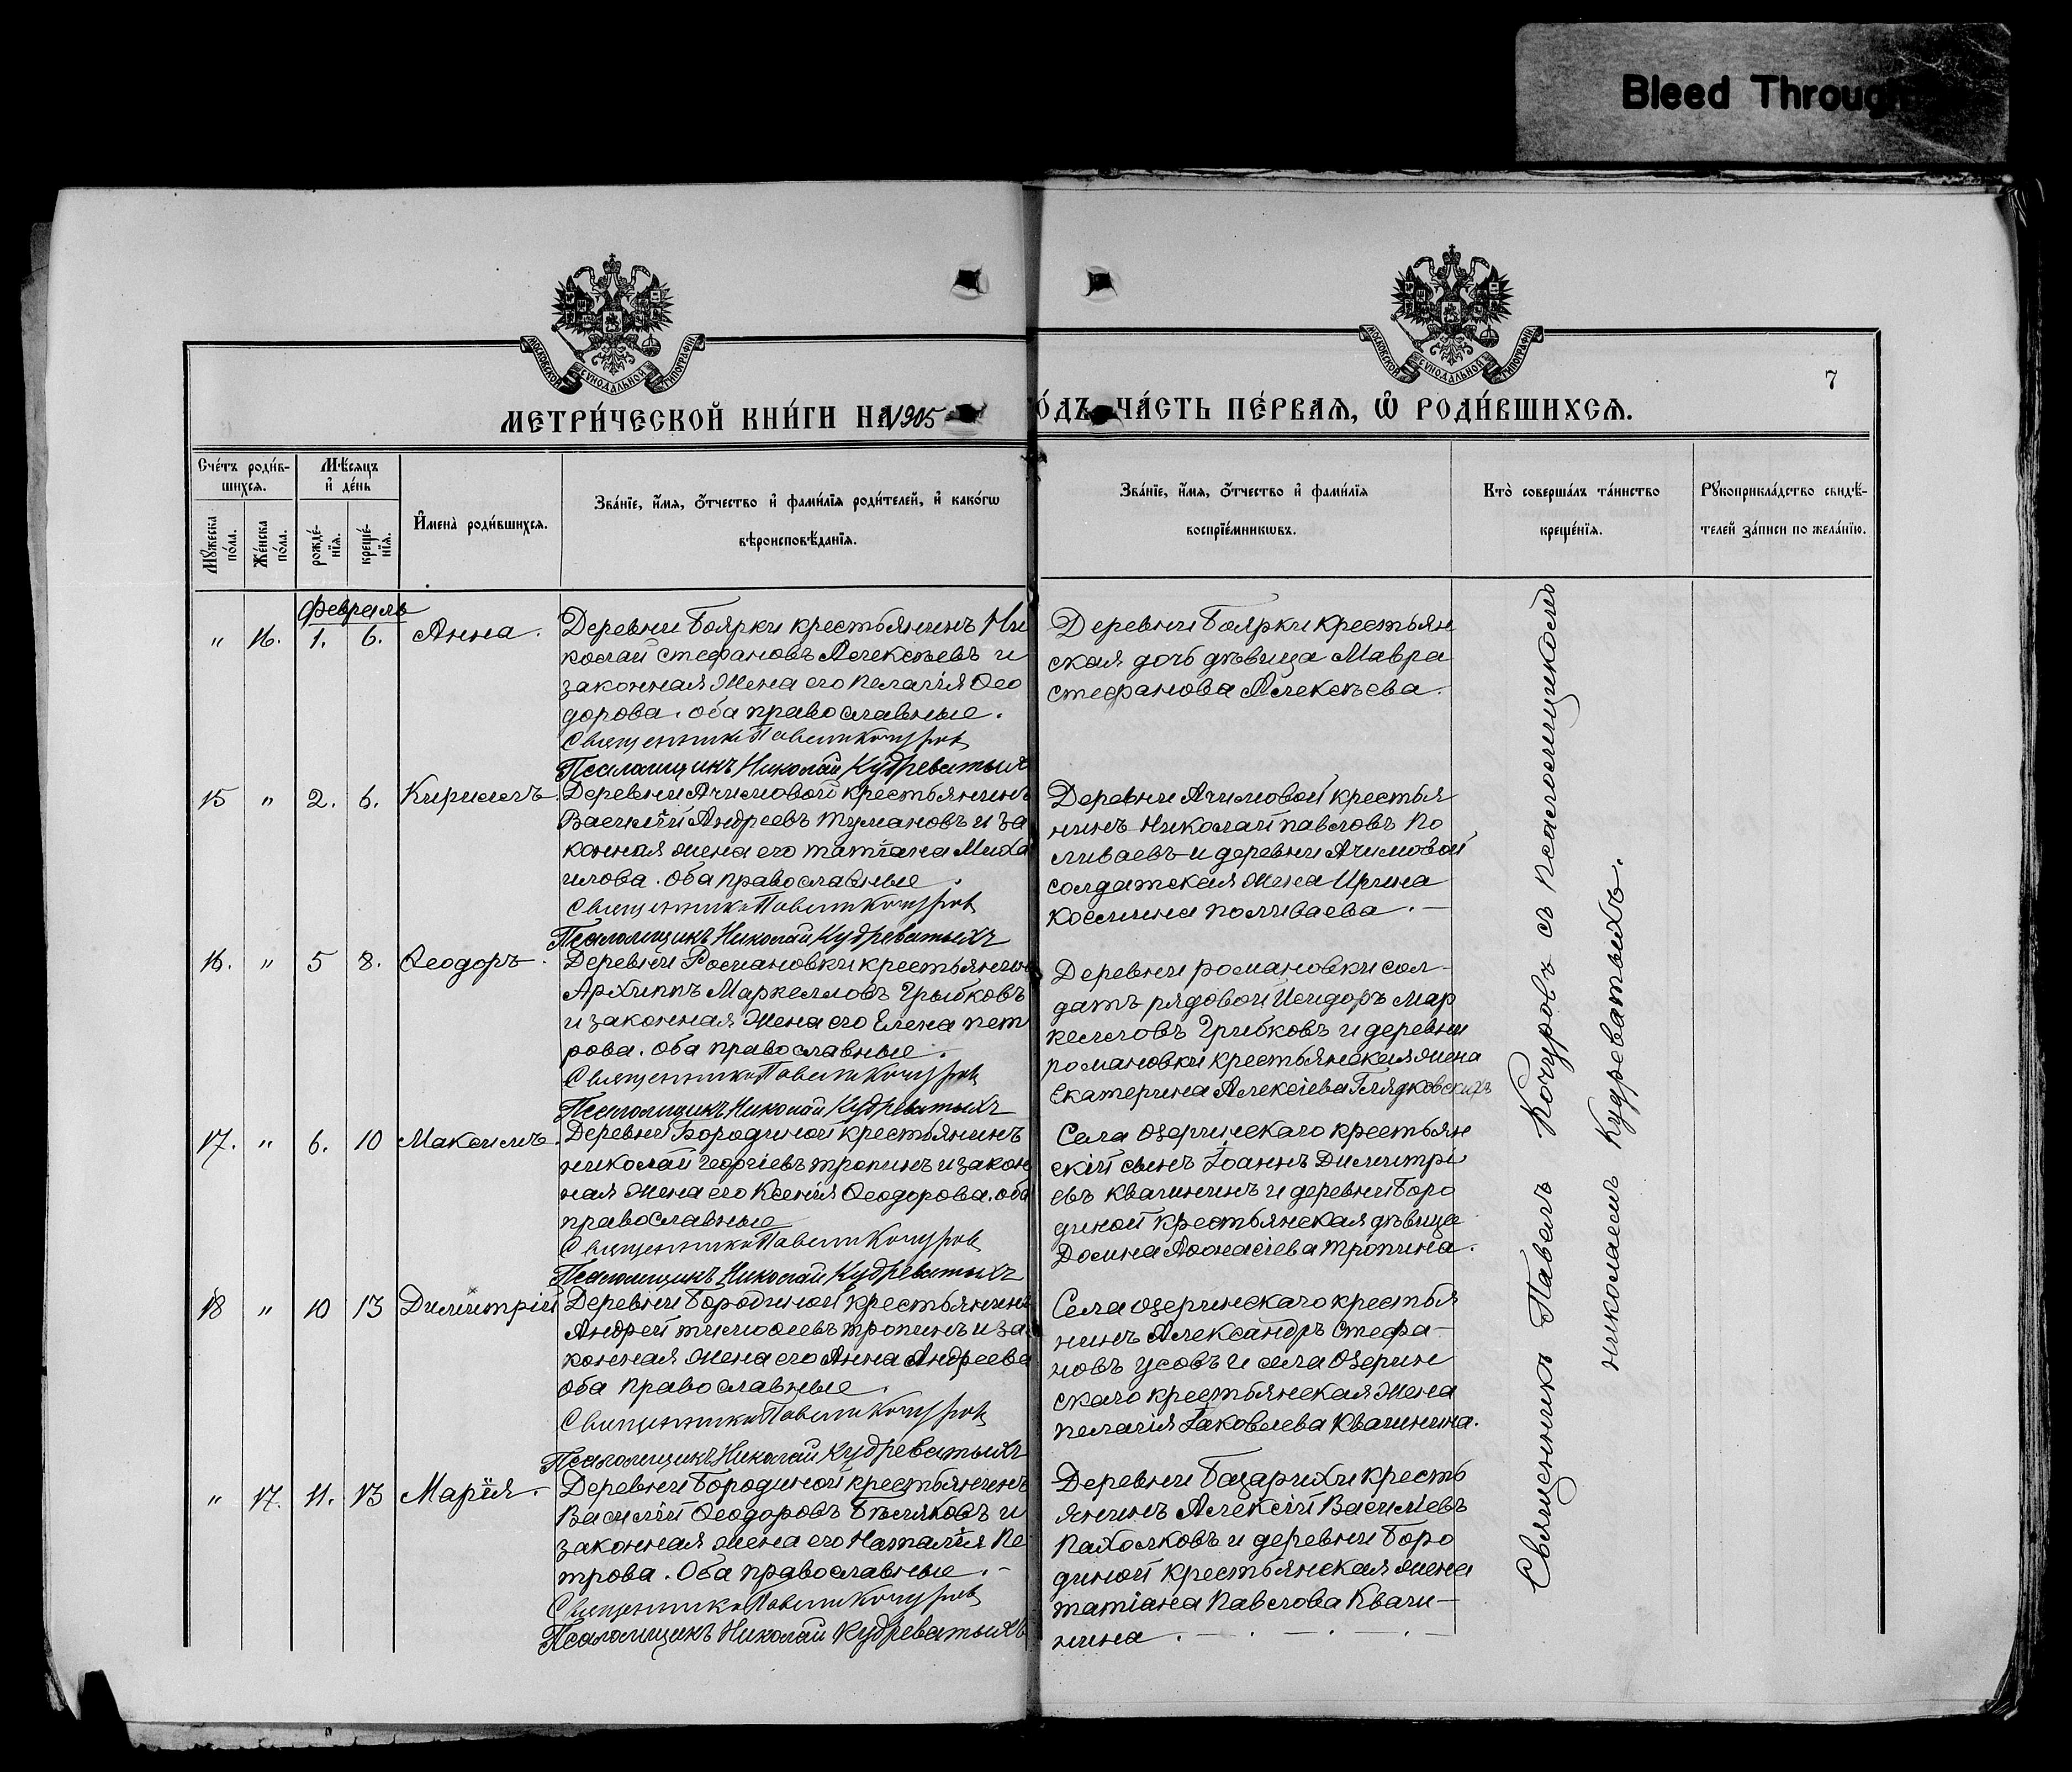 Bleed Through
МОСКОВСКОЙ СУНОДАЛЬНОЙ ТИПОГРАФІИ
МОСКОВСКОЙ СУНОДАЛЬНОЙ ТИПОГРАФІИ
7
МЕТРИ́ЧЕСКОЙ КНИ́ГИ НА 1905 ГО́ДЪ ЧА́СТЬ ПЕ́РВАЯ, Ѡ РОДИ́ВШИХСЯ.
Сче́тъ роди́в-
шихся.
Мѣ́сяцъ
и҆ де́нь
Мꙋ́жеска
по́ла.
Же́нска
по́ла.
рожде́-
нїя.
креще́-
нїя.
И҆мена̀ роди́вшихся.
Зва́нїе, и҆́мя, ѻ҆́тчество и҆ фами́лїя роди́телей, и҆ како́гѡ
вѣроисповѣ́данїя.
Зва́нїе, и҆́мя, ѻ҆́тчество и҆ фами́лїя
воспрїе́мникѡвъ.
Кто̀ соверша́лъ та́инство
креще́нїя.
Рꙋкоприкла́дство свидѣ́-
телей за́писи по жела́нїю.
Февраль
" 16. 1. 6. Анна.
Деревни Боярки крестьянинъ Ни
колай Стефановъ Алексѣевъ и
законная жена его Пелагія Ѳео
дорова. Оба православные.
Священникъ Павелъ Кочуровъ
Псаломщикъ Николай Кудреватыхъ
Деревни Боярки крестьян
ская дочь дѣвица Мавра
Стефанова Алексѣева.
15 " 2. 6. Кириллъ.
Деревни Ачимовой крестьянинъ
Василій Андреевъ Тумановъ и за
конная жена его Татіана Миха
илова. Оба православные.
Священникъ Павелъ Кочуровъ
Псаломщикъ Николай Кудреватыхъ
Деревни Ачимовой крестья
нинъ Николай Павловъ По
ливаевъ и деревни Ачимовой
солдатская жена Ирина
Космина Поливаева. —
16. " 5 8. Ѳеодоръ.
Деревни Романовки крестьянинъ
Архиппъ Маркелловъ Грыбковъ
и законная жена его Елена Пет
рова. Оба православные.
Священникъ Павелъ Кочуровъ
Псаломщикъ Николай Кудреватыхъ
Деревни Романовки сол-
датъ рядовой Исидоръ Мар
келловъ Грибковъ и деревни
Романовки крестьянская жена
Екатерина Алексіева Глядковскихъ
17. " 6. 10 Максимъ.
Деревни Бородиной крестьянинъ
Николай Георгіевъ Тропинъ и закон
ная жена его Ксенія Ѳеодорова. Оба
православные
Священникъ Павелъ Кочуровъ
Псаломщикъ Николай Кудреватыхъ
Села Озернинскаго крестьян
скій сынъ Іоаннъ Димитрі
евъ Квачининъ и деревни Боро
диной крестьянская дѣвица
Домна Аѳанасіева Тропина.
18 " 10 13 Димитрій
Деревни Бородиной крестьянинъ
Андрей Тимоѳеевъ Тропинъ и за
конная жена его Анна Андреева
Оба православные.
Священникъ Павелъ Кочуровъ
Псаломщикъ Николай Кудреватыхъ
Села Озернинскаго крестья
нинъ Александръ Стефа-
новъ Усовъ и села Озернин
скаго крестьянская жена
Пелагія Іаковлева Квачинина.
" 17. 11. 13 Марія.
Деревни Бородиной крестьянинъ
Василій Ѳеодоровъ Бѣляковъ и
законная жена его Наталія Пе
трова. Оба православные. —
Священникъ Павелъ Кочуровъ
Псаломщикъ Николай Кудреватыхъ
Деревни Базарихи кресть
янинъ Алексій Васильевъ
Пахолковъ и деревни Боро
диной крестьянская жена
Татіана Павлова Квачи—
нина. — . — . — . —
Священникъ Павелъ Кочуровъ съ псаломщикомъ
Николаемъ Кудреватыхъ.